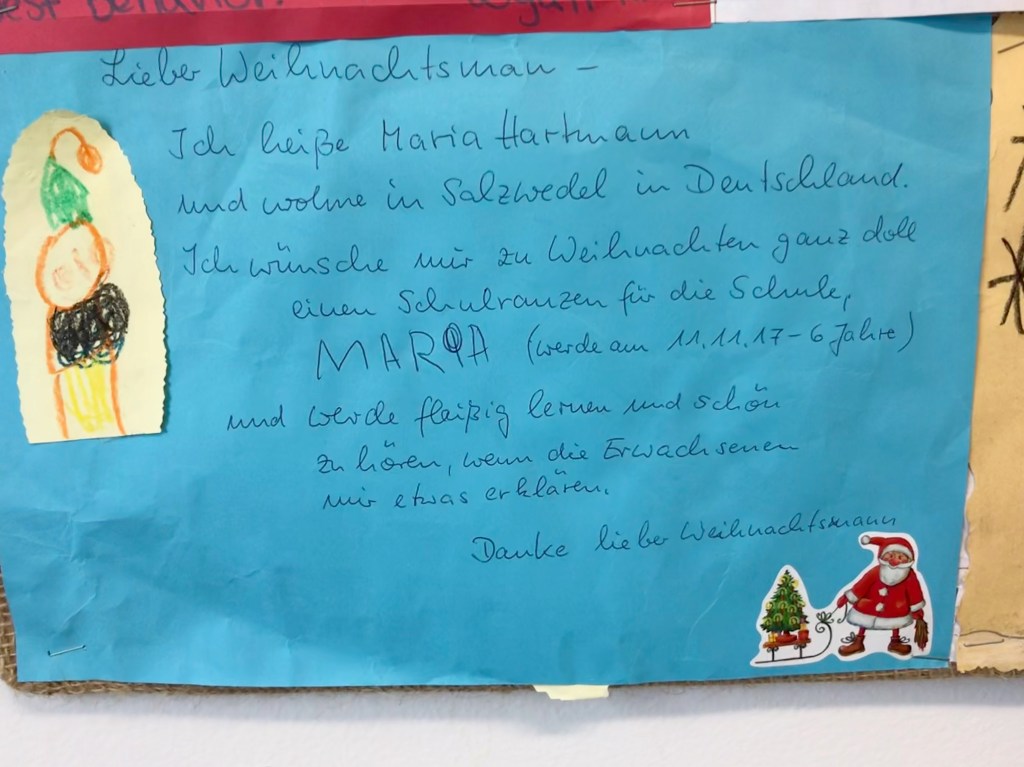 Lieber Weihnachtsman –
Ich heiße Maria Hartmann
und wohne in Salzwedel in Deutschland.
Ich wünsche mir zu Weihnachten ganz doll
einen Schulranzen für die Schule,
MARIA (werde am 11.11.17 – 6 Jahre)
und werde fleißig lernen und schön
zu hören, wenn die Erwachsenen
mir etwas erklären.
Danke lieber Weihnachtsmann